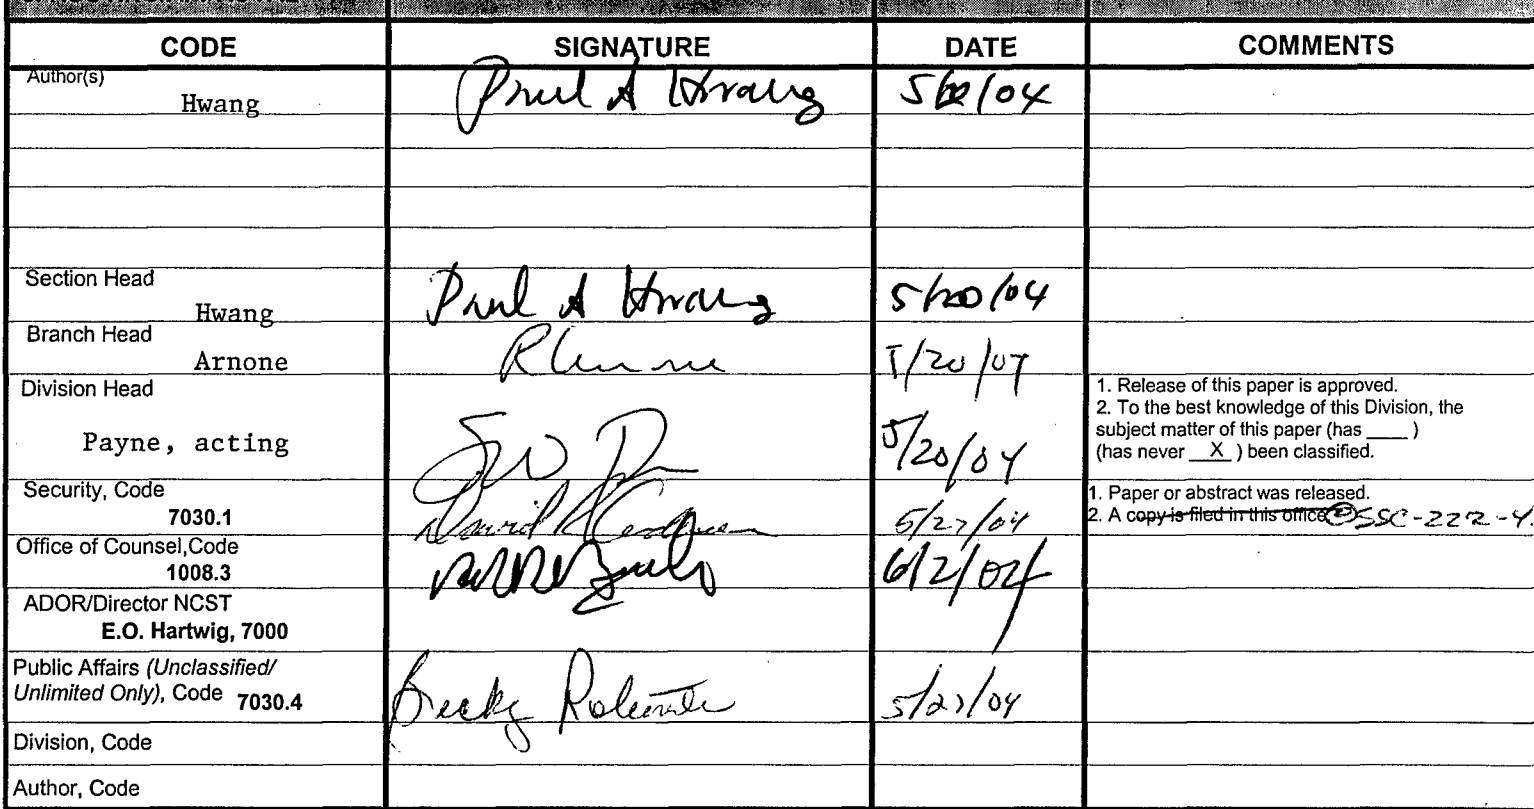 CODE SIGNATURE DATE COMMENTS
Author(s)
Hwang Paul A Hwang 5/20/04
Section Head
Hwang Paul A Hwang 5/20/04
Branch Head
Arnone 5/20/04
Division Head
Payne, acting 5/20/04
1. Release of this paper is approved.
2. To the best knowledge of this Division, the
subject matter of this paper (has ____ )
(has never __X__ ) been classified.
Security, Code
7030.1 David 5/27/04
1. Paper or abstract was released.
2. A copy is filed in this office SSC-222-4
Office of Counsel,Code
1008.3 6/2/04
ADOR/Director NCST
E.O. Hartwig, 7000
Public Affairs (Unclassified/
Unlimited Only), Code 7030.4 Becky 5/27/04
Division, Code
Author, Code